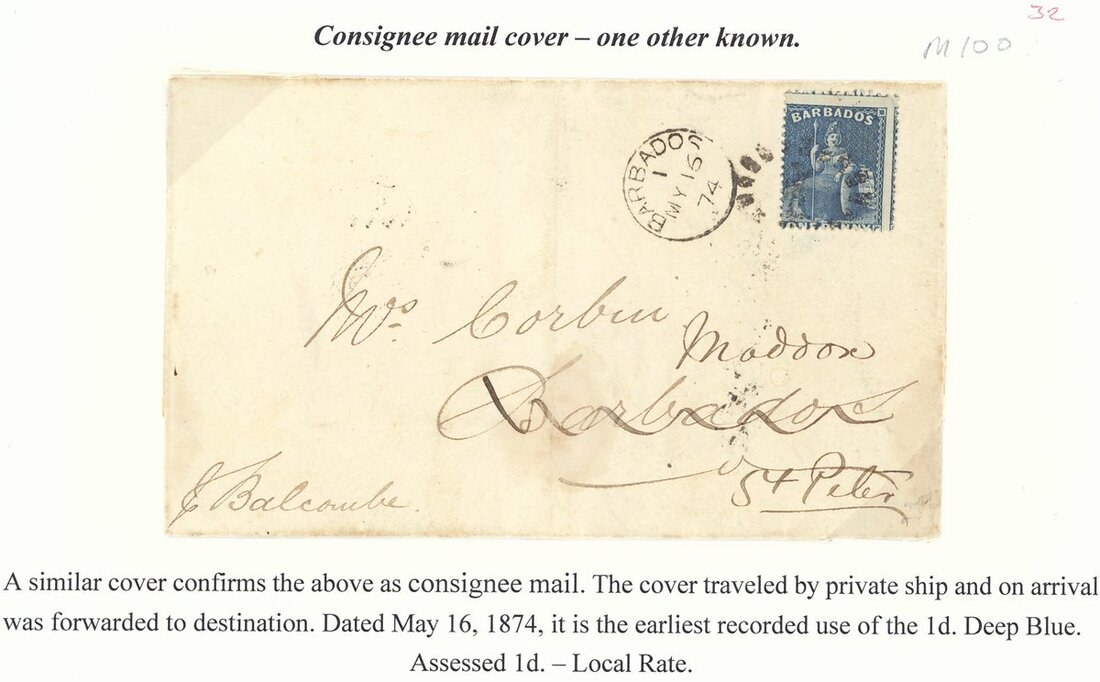 32
Consignee mail cover – one other known.
M100
BARBADOS
1
MY 16
74
BARBADOS
ONE PENNY
Mrs. Corbin
Maddox
Barbados
St Peter
Balcombe.
A similar cover confirms the above as consignee mail. The cover traveled by private ship and on arrival
was forwarded to destination. Dated May 16, 1874, it is the earliest recorded use of the 1d. Deep Blue.
Assessed 1d. – Local Rate.